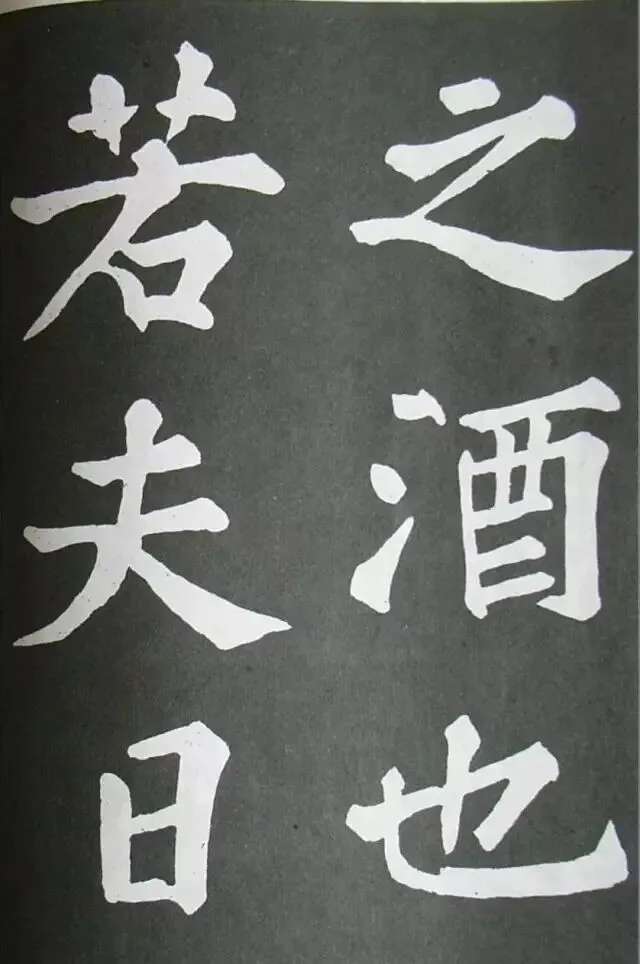 之酒也
若夫日